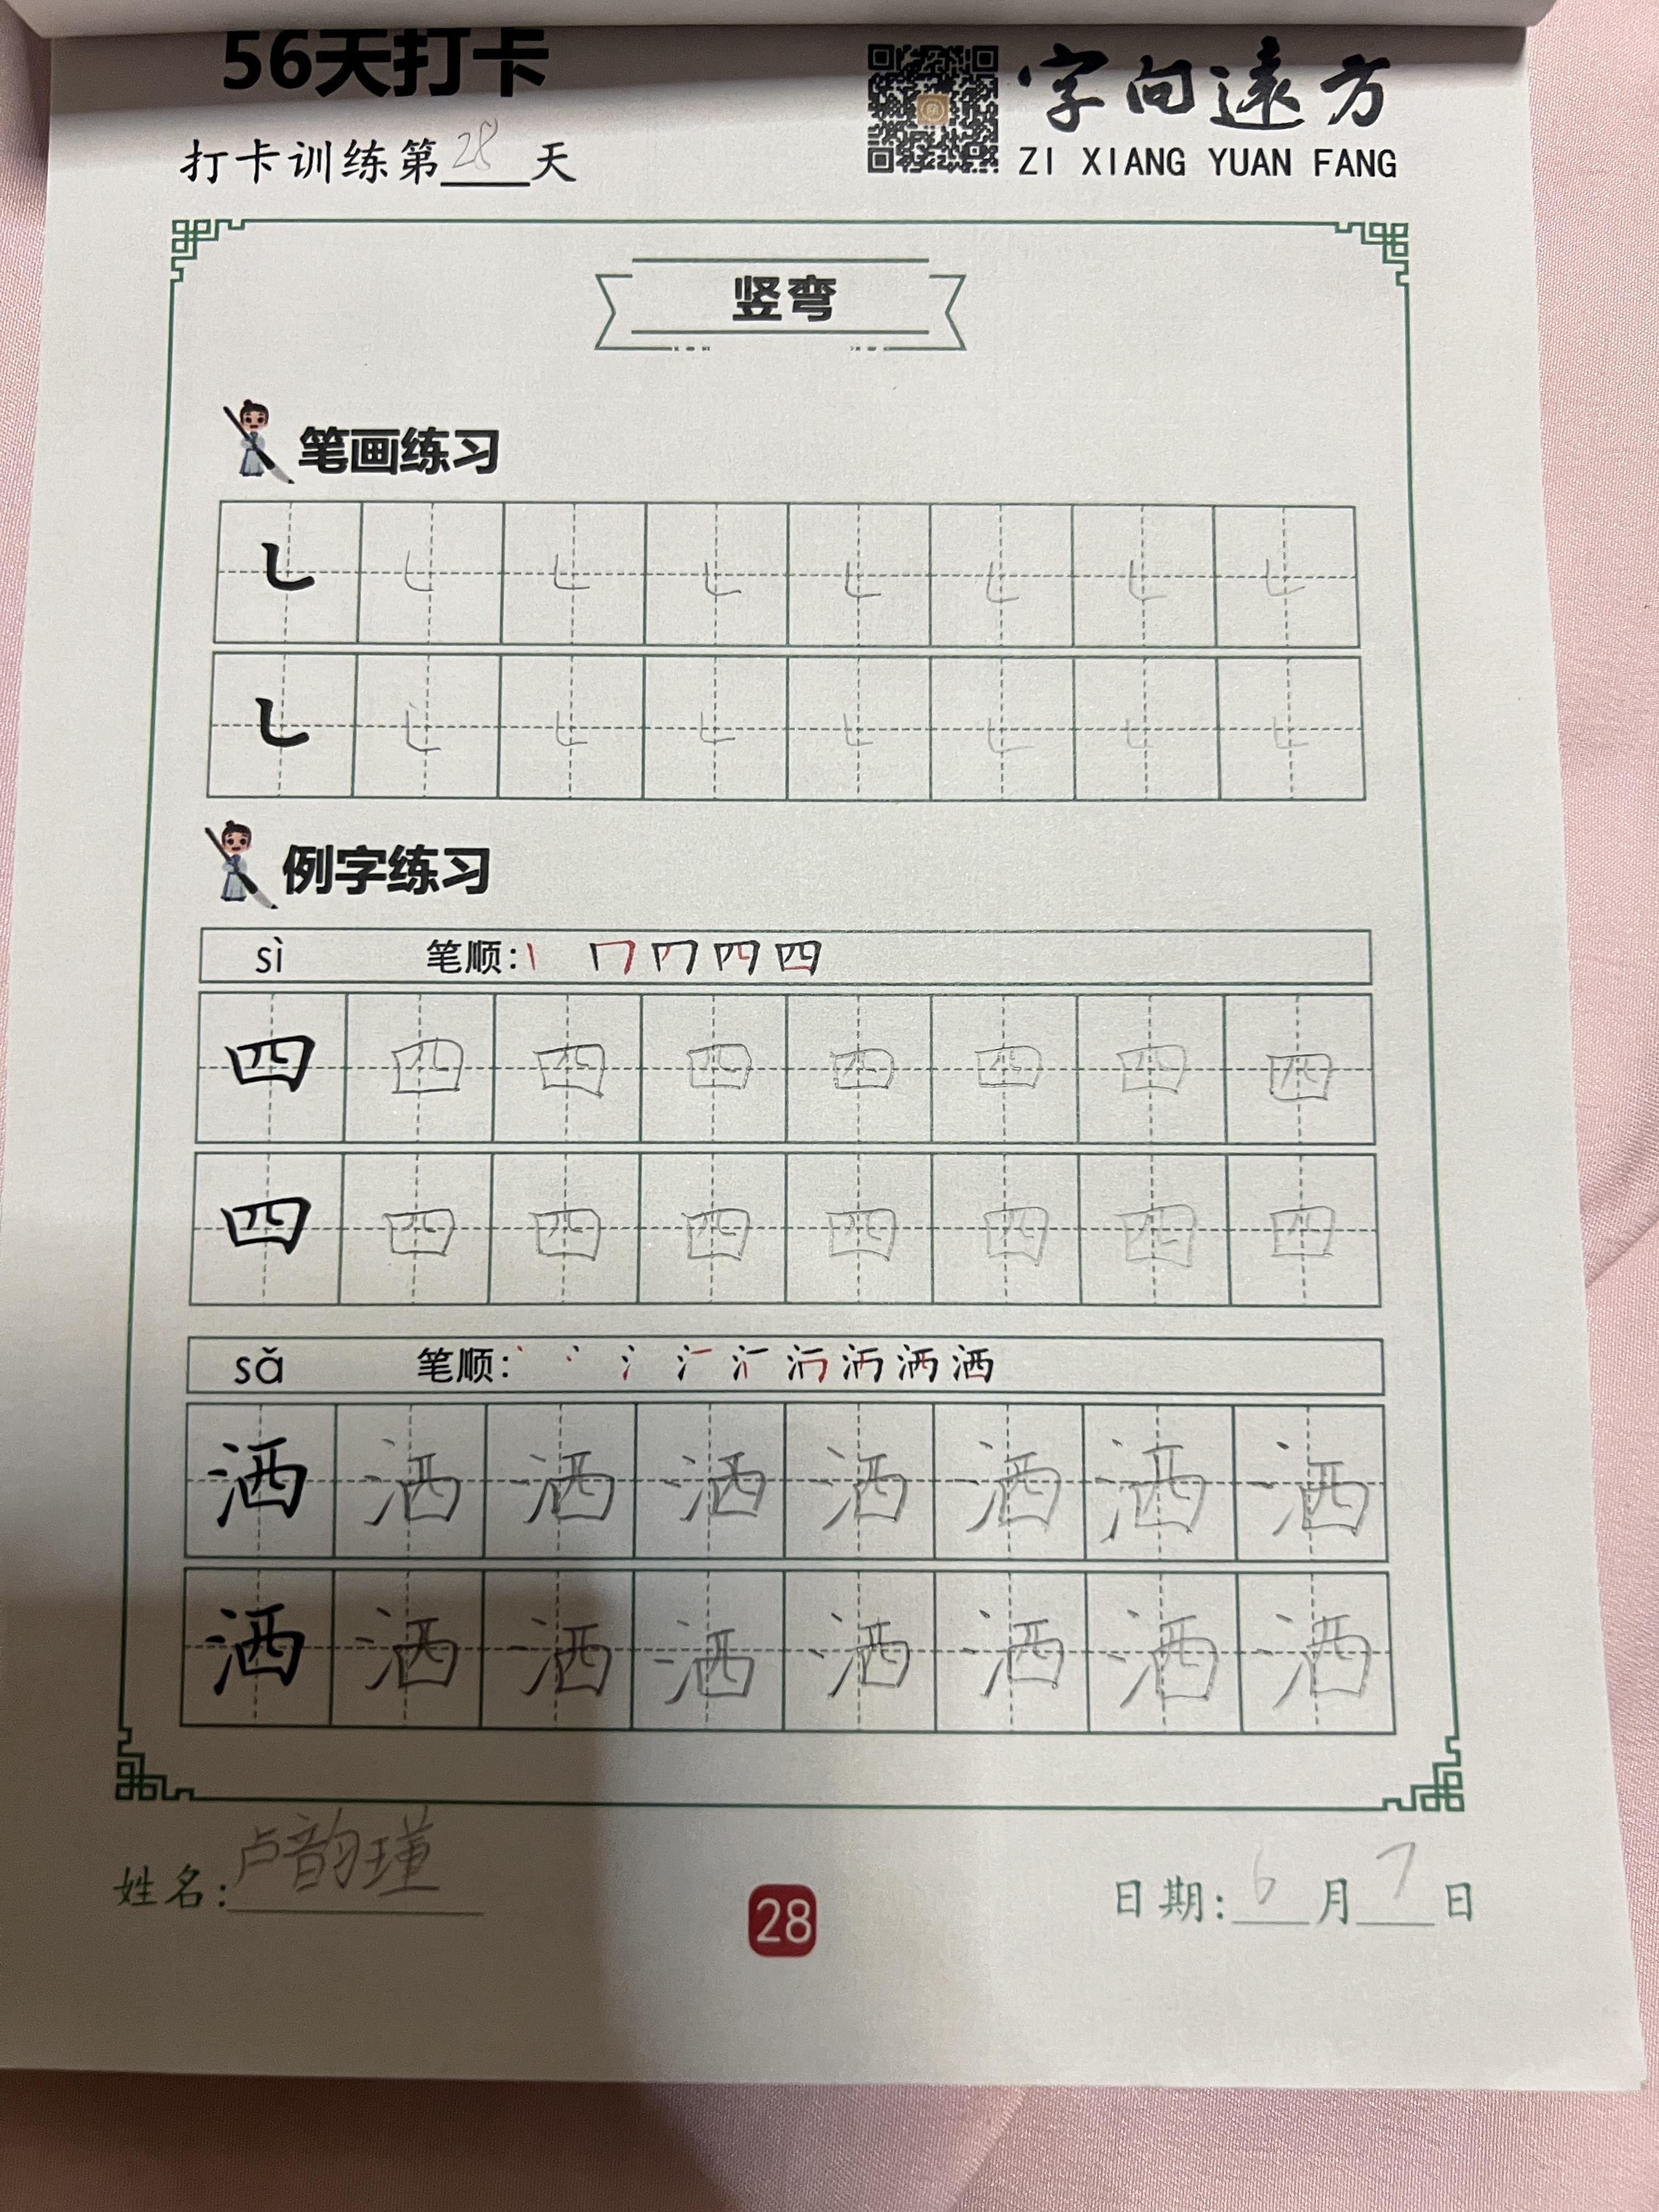 56天打卡
字向遠方
打卡训练第28天
ZI XIANG YUAN FANG
竖弯
笔画练习
㇄ ㇄ ㇄ ㇄ ㇄ ㇄ ㇄ ㇄
㇄ ㇄ ㇄ ㇄ ㇄ ㇄ ㇄ ㇄
例字练习
sì 笔顺: 丨 冂 四
四 四 四 四 四 四 四 四
四 四 四 四 四 四 四 四
sǎ 笔顺: 丶 冫 氵 洒
洒 洒 洒 洒 洒 洒 洒 洒
洒 洒 洒 洒 洒 洒 洒 洒
姓名: 卢韵瑾
28
日期: 6月7日